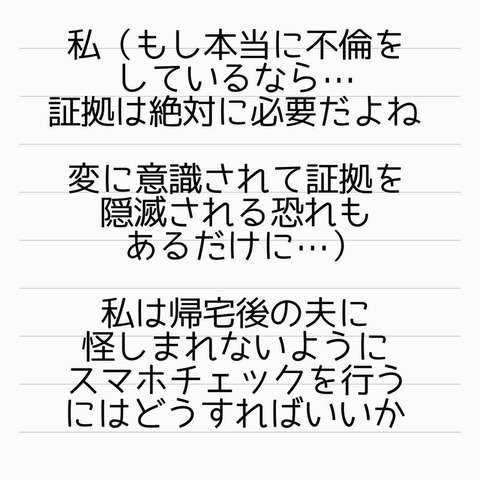 私（もし本当に不倫を
しているなら…
証拠は絶対に必要だよね
変に意識されて証拠を
隠滅される恐れも
あるだけに…）
私は帰宅後の夫に
怪しまれないように
スマホチェックを行う
にはどうすればいいか